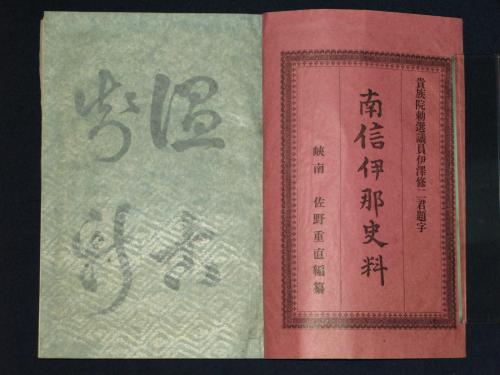 貴族院勅選議員伊澤修二君題字
南信伊那史料
峡南 佐野重直編纂
温故
知新